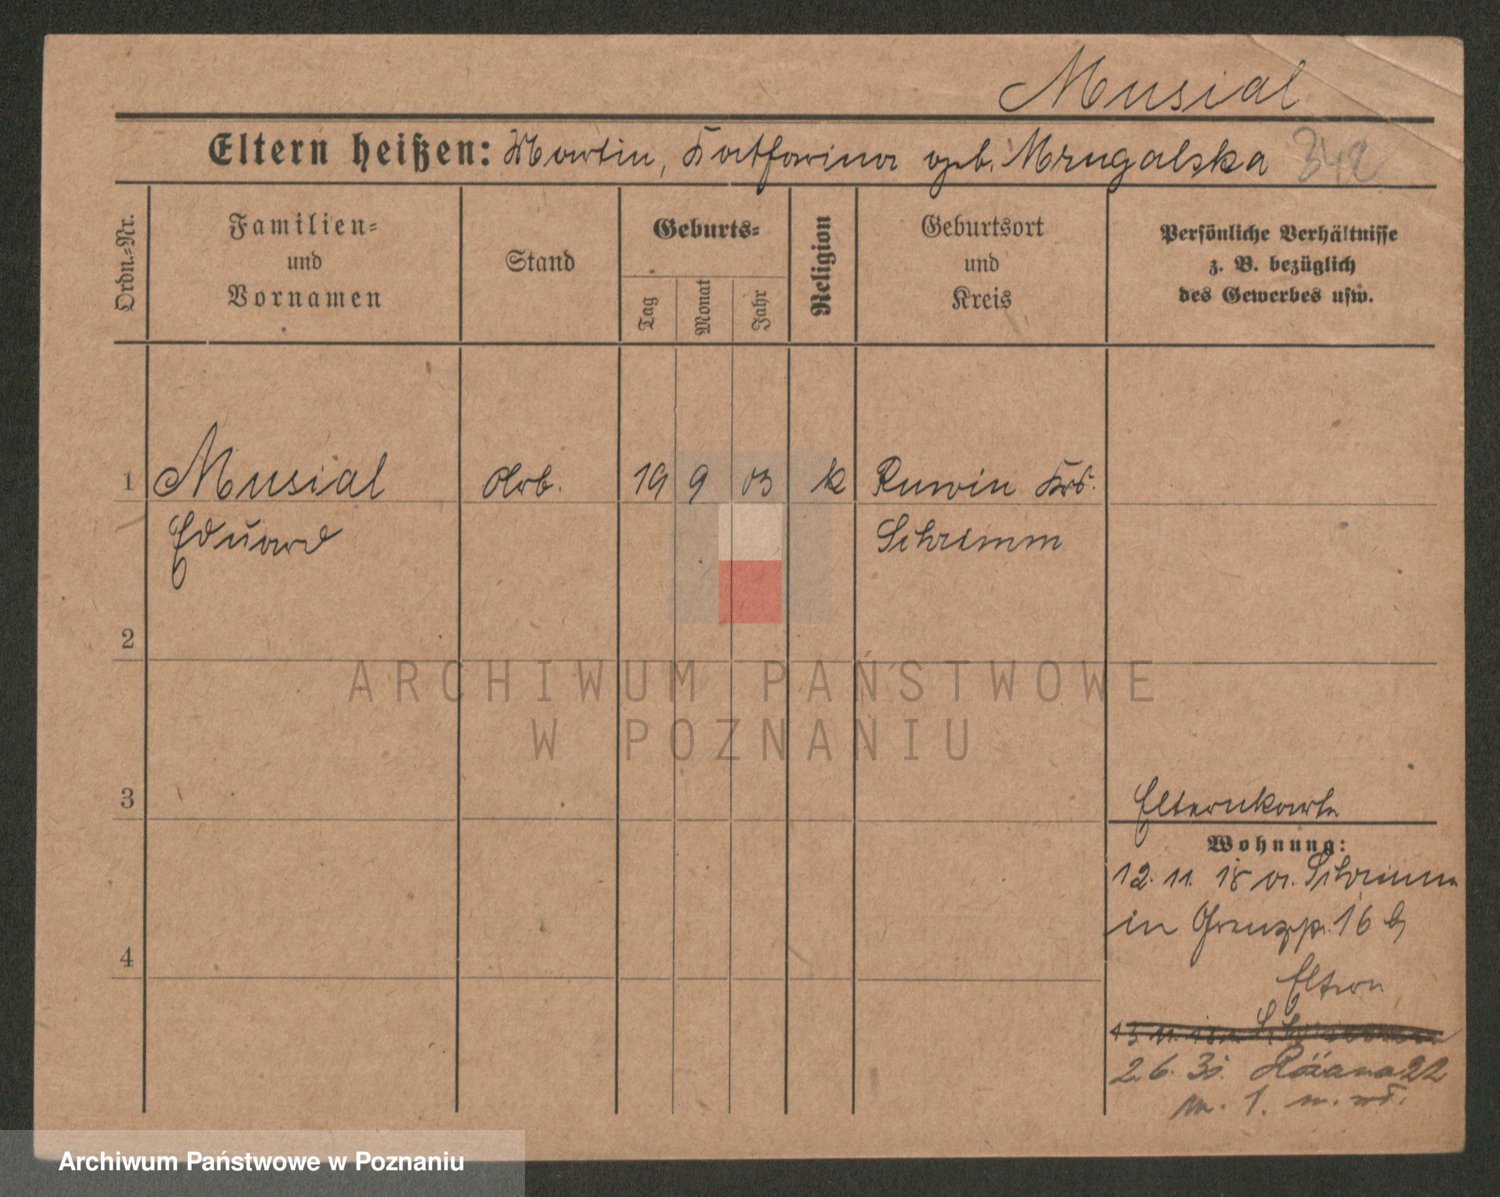 Musial
Eltern heißen: Martin, Katharina geb. Mrugalska 342
Ordn.-Nr.
Familien-
und
Vornamen
Stand
Geburts-
Tag
Monat
Jahr
Religion
Geburtsort
und
Kreis
Persönliche Verhältnisse
z. B. bezüglich
des Gewerbes usw.
1 Musial Arb. 19 9 03 k Ruwin Krs.
Eduard Schrimm
2
ARCHIWUM PAŃSTWOWE
W POZNANIU
3
Elternkarte
Wohnung:
12. 11. 18 v. Schrimm
in 16 b
4
Eltern
2. 6. Różana 22
1.
Archiwum Państwowe w Poznaniu